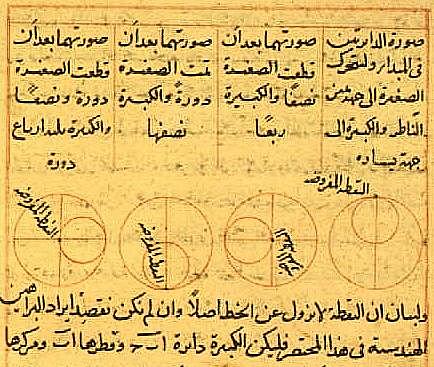 صورة الدايرتين
في المبدا ولنتحرك
الصغيرة الى جهة يمين
الناظر والكبيرة الى
جهة يساره
صورتهما بعد أن
قطعت الصغيرة
نصفًا والكبيرة
ربعًا
صورتهما بعد أن
تمت الصغيرة
دورةً والكبيرة
نصفها
صورتهما بعد أن
قطعت الصغيرة
دورة ونصفًا
والكبيرة ارباع
دورة
النقطة المفروضة
النقطة المفروضة
النقطة المفروضة
ولبيان ان النقطة لا يزول عن الخط اصلًا وان لم نكن نقصد ايراد البراهين
الهندسية في هذا المختصر فليكن الكبيرة دائرة وقطرها اب ومركزها